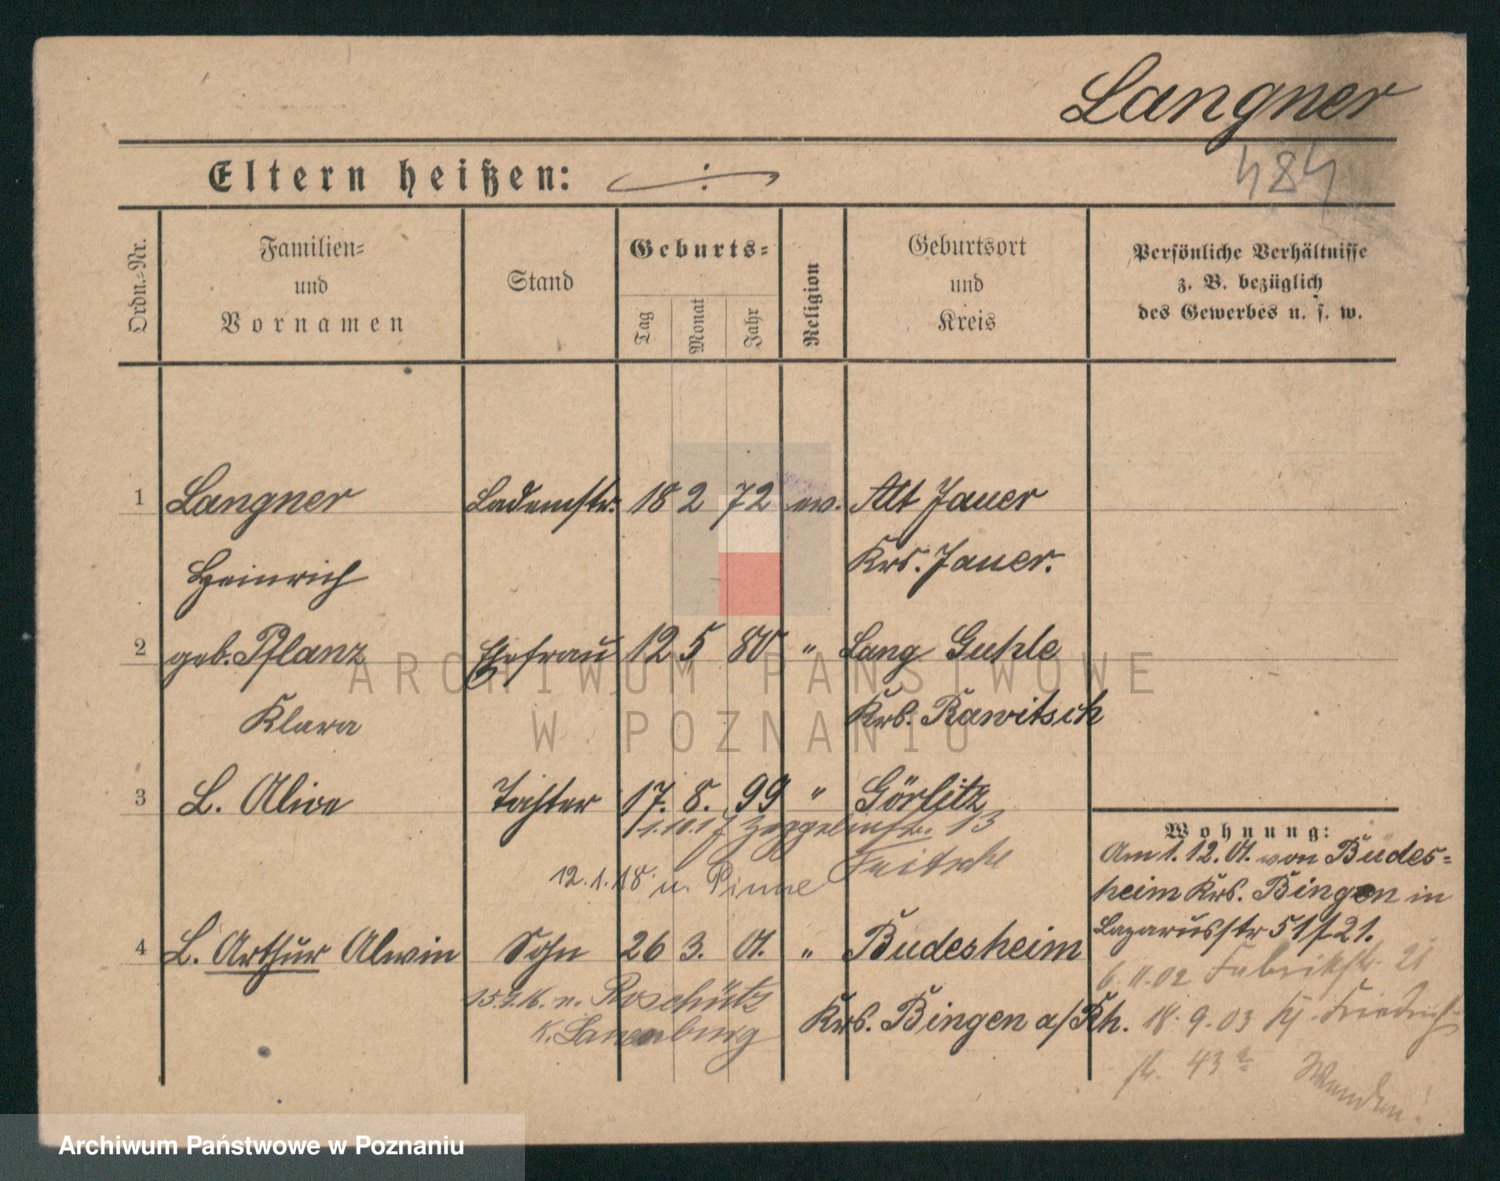 Langner
484
Eltern heißen: ·/.
Ordn.=Nr.
Familien=
und
Vornamen
Stand
Geburts=
Tag
Monat
Jahr
Religion
Geburtsort
und
Kreis
Persönliche Verhältnisse
z. B. bezüglich
des Gewerbes u. s. w.
1 Langner Lademstr. 18 2 72 ev. Alt Jauer
Heinrich Krs. Jauer.
2 geb. Pflanz Ehefrau 12 5 80 " Lang Guhle
Klara Krs. Rawitsch
3 L. Alice Tochter 17. 8. 99 " Görlitz
1.10.17 Zeppelinstr. 13
12.1.18 n. Pinne
Wohnung:
Am 1.12.01. von Büdes=
heim Krs. Bingen in
Lazarusstr 51 f. 21.
4 L. Arthur Alwin Sohn 26 3. 01. " Büdesheim
Krs. Bingen a/Rh.
15.2.16. n. Roschütz
K. Lauenburg
6.11.02 Fabrikstr. 21
18.9.03 Friedrich
str. 43a Wenden!
ARCHIWUM PAŃSTWOWE
W POZNANIU
Archiwum Państwowe w Poznaniu